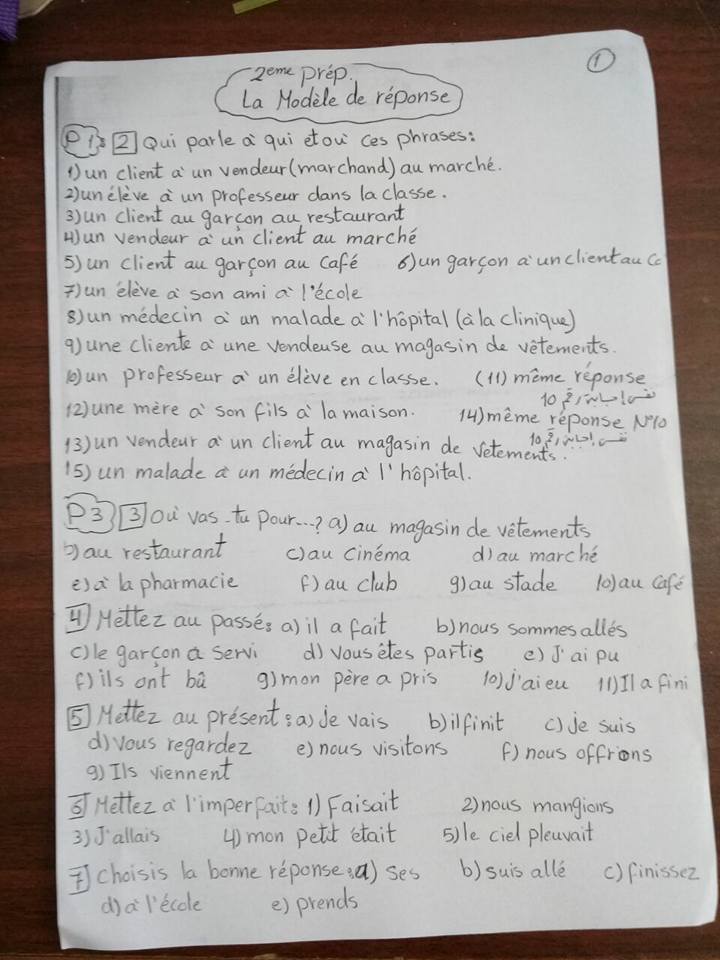 1
2eme prép.
La Modèle de réponse
P 1: 2 Qui parle à qui et où ces phrases:
1) un client à un vendeur (marchand) au marché.
2) un élève à un professeur dans la classe.
3) un client au garçon au restaurant
4) un vendeur à un client au marché
5) un client au garçon au café 6) un garçon à un client au Ca
7) un élève à son ami à l'école
8) un médecin à un malade à l'hôpital (à la clinique)
9) une cliente à une vendeuse au magasin de vêtements.
10) un professeur à un élève en classe. (11) même réponse
نفس إجابة رقم 10
12) une mère à son fils à la maison. 14) même réponse N°10
نفس إجابة رقم 10
13) un vendeur à un client au magasin de vetements.
15) un malade à un médecin à l'hôpital.
P3 3 Où vas-tu pour...? a) au magasin de vêtements
b) au restaurant c) au cinéma d) au marché
e) à la pharmacie f) au club g) au stade 10) au café
4 Mettez au passé: a) il a fait b) nous sommes allés
c) le garçon a servi d) vous êtes partis e) J'ai pu
f) ils ont bû g) mon père a pris 10) j'ai eu 11) Il a fini
5 Mettez au présent: a) Je vais b) il finit c) je suis
d) vous regardez e) nous visitons f) nous offrions
g) Ils viennent
6 Mettez à l'imperfait: 1) Faisait 2) nous mangions
3) J'allais 4) mon petit était 5) le ciel pleuvait
7 choisis la bonne réponse: a) ses b) suis allé c) finissez
d) à l'école e) prends